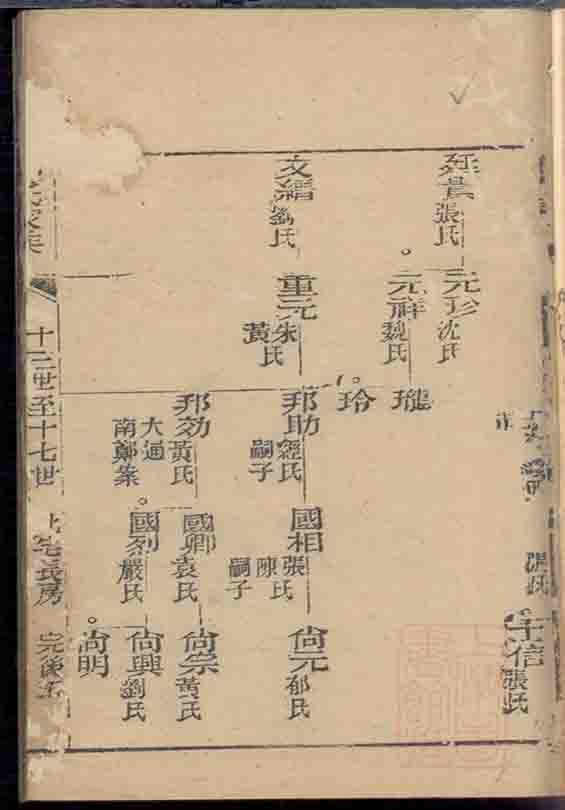 張氏
壬信
張氏
廷貴
張氏
元珍
沈氏
元祥
魏氏
瓏
玲
文縉
劉氏
重元
朱
黃氏
邦助
經氏
嗣子
國相
張
陳氏
嗣子
尙元
郁氏
邦効
黃氏
大通
南鄭案
國卿
袁氏
尙宗
黃氏
國烈
嚴氏
尙興
劉氏
尙明
世至十七世
宅長房
完後